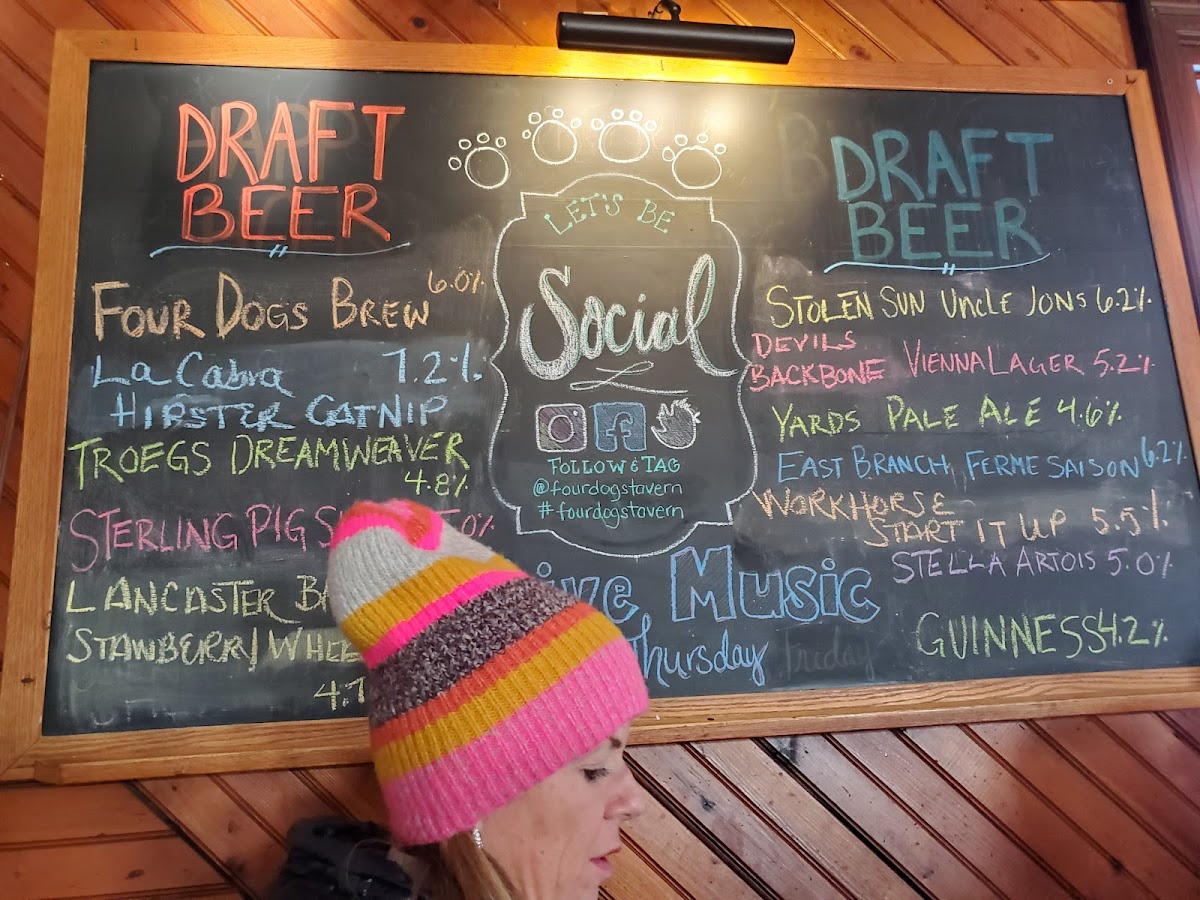 DRAFT
BEER
FOUR DOGS BREW 6.0%
La Cabra 7.2%
HIPSTER CATNIP
TROEGS DREAMWEAVER
4.8%
STERLING PIG
LANCASTER
STAWBERRY
LET'S BE
Social
FOLLOW & TAG
@fourdogstavern
#fourdogstavern
Music
Thursday Friday
DRAFT
BEER
STOLEN SUN UNCLE JONS 6.2%
DEVILS
BACKBONE VIENNA LAGER 5.2%
YARDS PALE ALE 4.6%
EAST BRANCH FERME SAISON 6.2%
WORKHORSE
START IT UP 5.5%
STELLA ARTOIS 5.0%
GUINNESS 4.2%